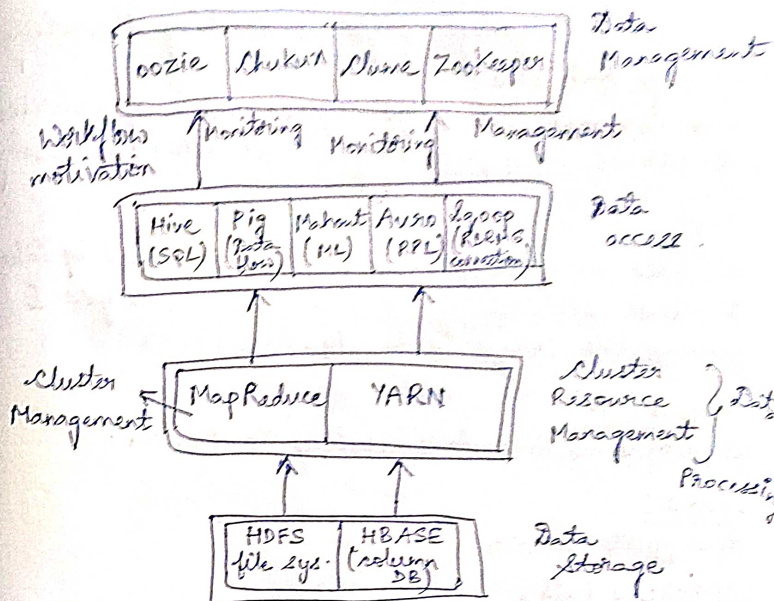 Data
Management
oozie Chukwa Flume ZooKeeper
Workflow
motivation
Monitoring
Monitoring
Management
Hive
(SQL)
Pig
(Data
flow)
Mahout
(ML)
Avro
(RPL)
Sqoop
(RDBMS
connection)
Data
access.
Cluster
Management
MapReduce YARN
Cluster
Resource
Management
Data
Processing
HDFS
file sys.
HBASE
(column
DB)
Data
Storage.